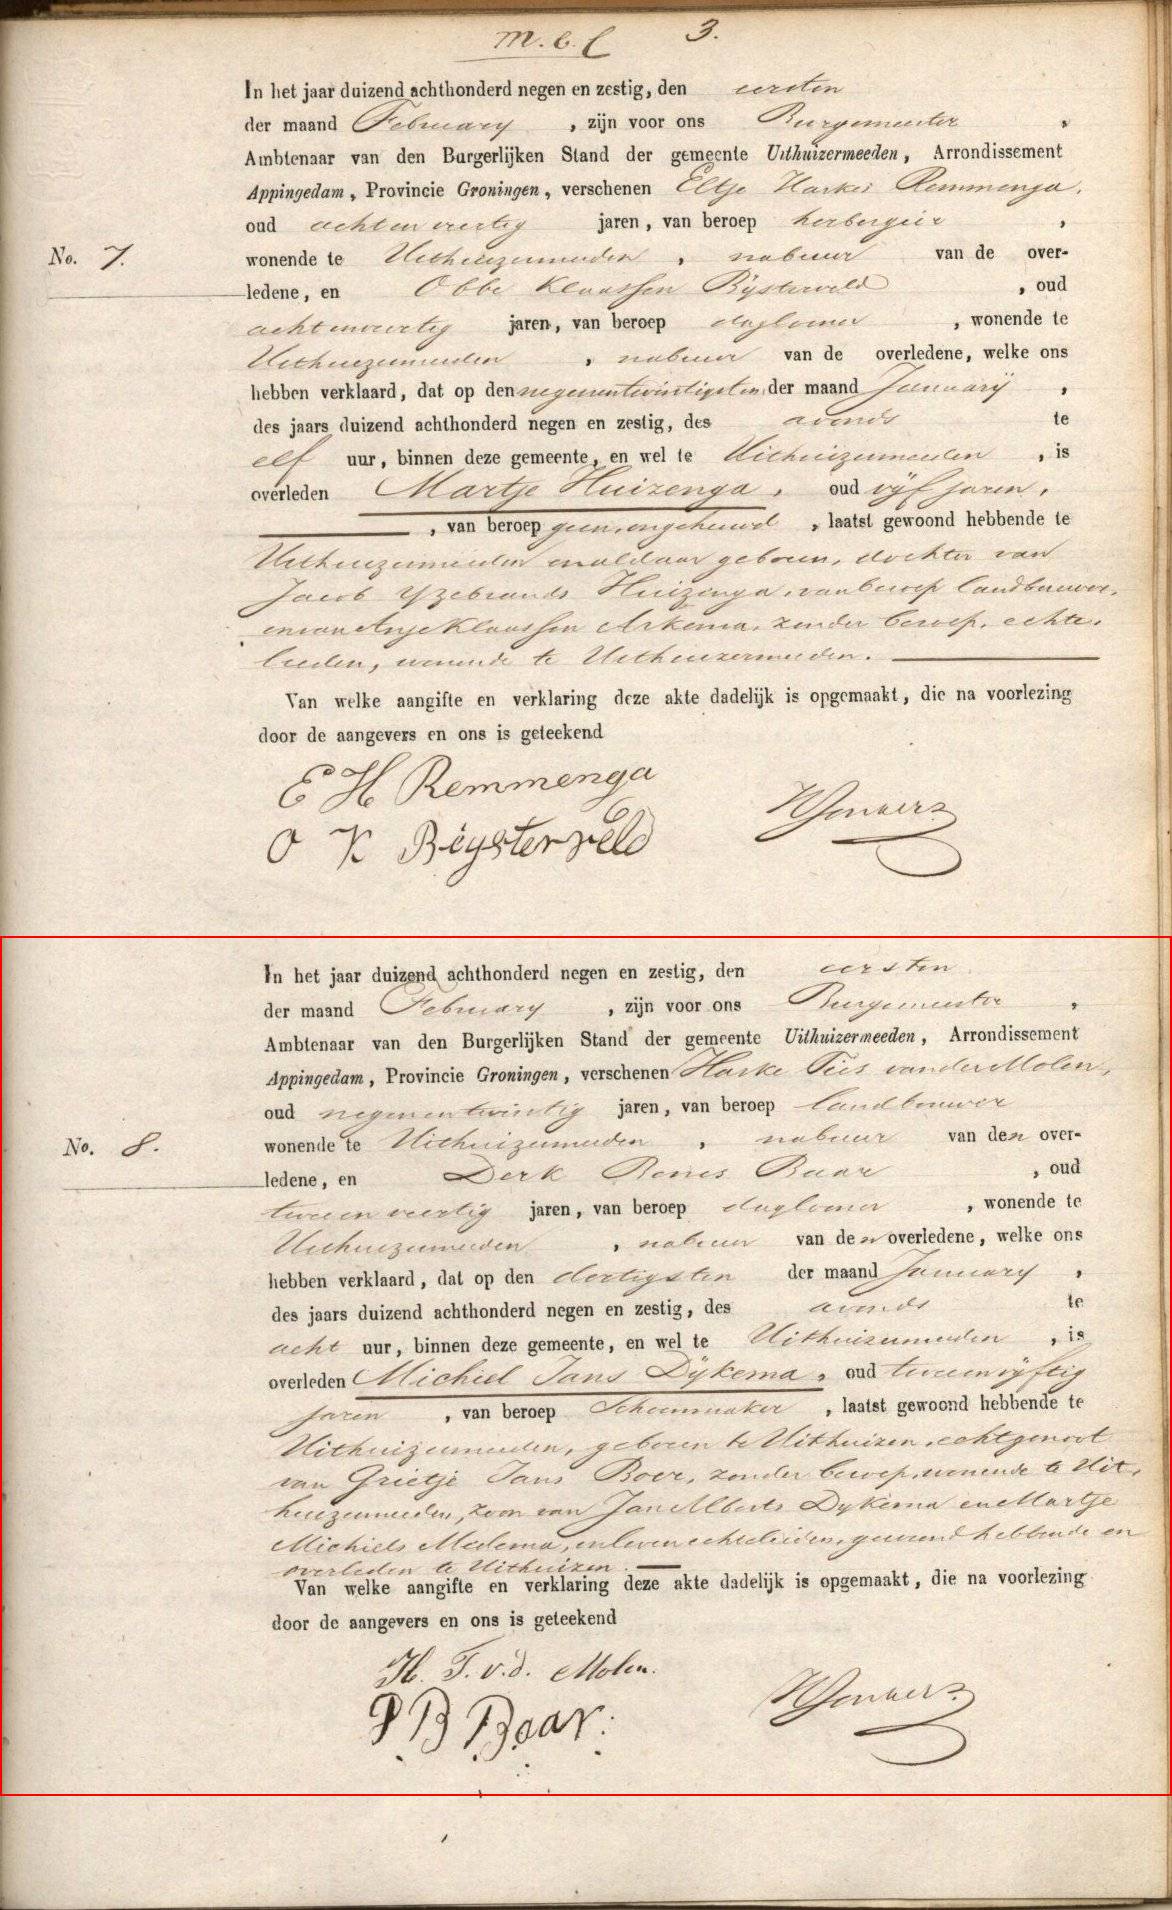 M. C. L 3.
In het jaar duizend achthonderd negen en zestig, den eersten
der maand February , zijn voor ons Burgemeester ,
Ambtenaar van den Burgerlijken Stand der gemeente Uithuizermeeden, Arrondissement
Appingedam, Provincie Groningen, verschenen Eltje Harkes Remmenga,
oud achtenveertig jaren, van beroep herbergier ,
No. 7. wonende te Uithuizermeeden , nabuur van de over-
ledene, en Obbe Klaassen Bijsterveld , oud
achtenveertig jaren, van beroep dagloner , wonende te
Uithuizermeeden , nabuur van de overledene, welke ons
hebben verklaard, dat op den negenentwintigsten der maand Januarij ,
des jaars duizend achthonderd negen en zestig, des avonds te
elf uur, binnen deze gemeente, en wel te Uithuizermeeden , is
overleden Martje Huizenga, oud vijf jaren,
, van beroep geen, ongehuwd , laatst gewoond hebbende te
Uithuizermeeden en aldaar geboren, dochter van
Jacob Yzebrands Huizenga, van beroep landbouwer,
en van Anje Klaassen Arkema, zonder beroep, echte-
lieden, wonende te Uithuizermeeden.
Van welke aangifte en verklaring deze akte dadelijk is opgemaakt, die na voorlezing
door de aangevers en ons is geteekend
E H Remmenga
O K Biysterveld
In het jaar duizend achthonderd negen en zestig, den eersten
der maand February , zijn voor ons Burgemeester ,
Ambtenaar van den Burgerlijken Stand der gemeente Uithuizermeeden, Arrondissement
Appingedam, Provincie Groningen, verschenen Harke Ties van der Molen,
oud negenentwintig jaren, van beroep landbouwer
No. 8. wonende te Uithuizermeeden , nabuur van den over-
ledene, en Derk Benes Baar , oud
tweeenveertig jaren, van beroep dagloner , wonende te
Uithuizermeeden , nabuur van den overledene, welke ons
hebben verklaard, dat op den dertigsten der maand January ,
des jaars duizend achthonderd negen en zestig, des avonds te
acht uur, binnen deze gemeente, en wel te Uithuizermeeden , is
overleden Michiel Jans Dijkema, oud tweeenvijftig
jaren , van beroep Schoenmaker , laatst gewoond hebbende te
Uithuizermeeden, geboren te Uithuizen, echtgenoot
van Grietje Jans Boer, zonder beroep, wonende te Uit-
huizermeeden, zoon van Jan Alberts Dykema en Martje
Michiels Medema, in leven echtelieden, gewoond hebbende en
overleden te Uithuizen.
Van welke aangifte en verklaring deze akte dadelijk is opgemaakt, die na voorlezing
door de aangevers en ons is geteekend
H. T. v. d. Molen.
D B Baar.